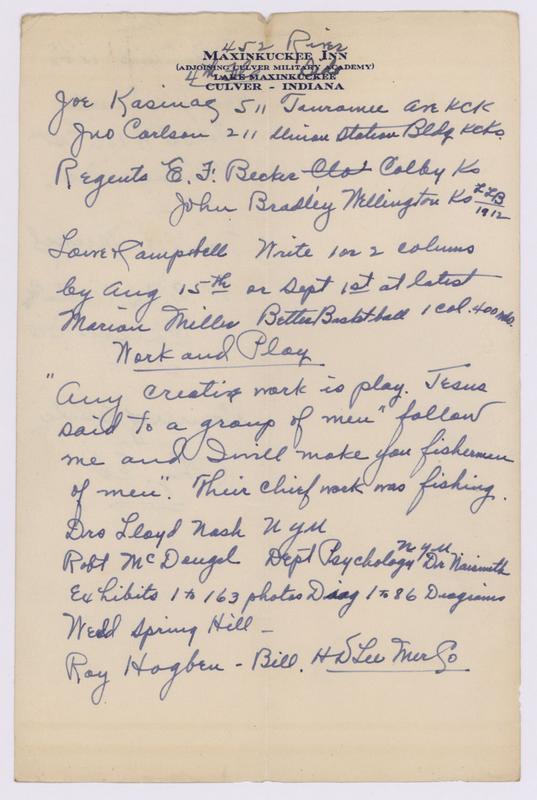 452 River
MAXINKUCKEE INN
(ADJOINING CULVER MILITARY ACADEMY)
LAKE MAXINKUCKEE
CULVER - INDIANA
Joe Kasinag 511 Tauromee Ave KCK
Jno Carlson 211 Union Station Bldg KCKs.
Regents E. F. Becker Colby Ks
John Bradley Wellington Ks LLB 1912
Lowe & Campbell Write 1 or 2 colums
by Aug 15th or Sept 1st at latest
Marian Miller Better Basketball 1 col. 400 wds.
Work and Play
"Any creative work is play. Jesus
said to a group of men "follow
me and I will make you fisherman
of men". Their chief work was fishing.
Drs Lloyd Nash N Y U
Robt McDougal Dept Psychology N Y U Dr Naismith
Exhibits 1 to 163 photos Diag 1 to 86 Diagrams
Wedd Spring Hill -
Roy Hogben - Bill. H D Lee Mer Co